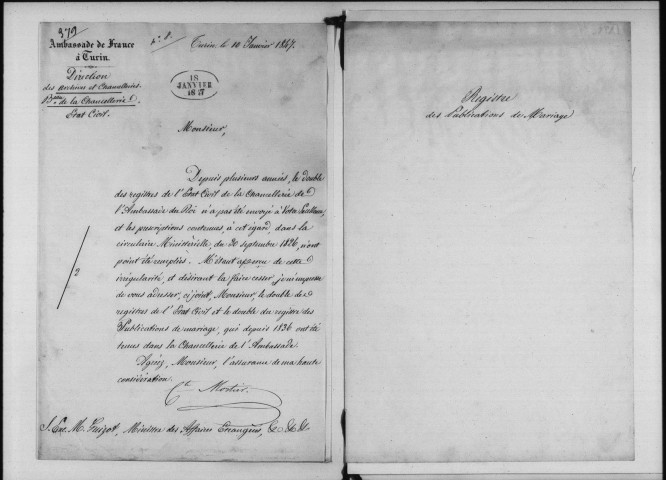 379
Ambassade de France
à Turin.
Direction
des Archives et Chancelleries.
Bau de la Chancellerie
Etat Civil.
n° 8.
Turin, le 10 Janvier 1847.
18
JANVIER
1847
Monsieur,
Depuis plusieurs années, le double
des registres de l'Etat Civil de la Chancellerie de
l'Ambassade du Roi n'a pas été envoyé à Votre Excellence
et les prescriptions contenues, à cet égard, dans la
circulaire Ministérielle, du 30 septembre 1826, n'ont
point été remplies. M'étant aperçu de cette
irrégularité, et désirant la faire cesser, je m'empresse
de vous adresser, ci joint, Monsieur, le double des
registres de l'Etat Civil et le double du registre des
Publications de mariage, qui depuis 1836 ont été
tenus dans la Chancellerie de l'Ambassade.
Agréez, Monsieur, l'assurance de ma haute
considération.
2
Cte Mortier.
S. Exc. M. Guizot, Ministre des Affaires Etrangères, &c &c &c.
Registre
des Publications de Mariage